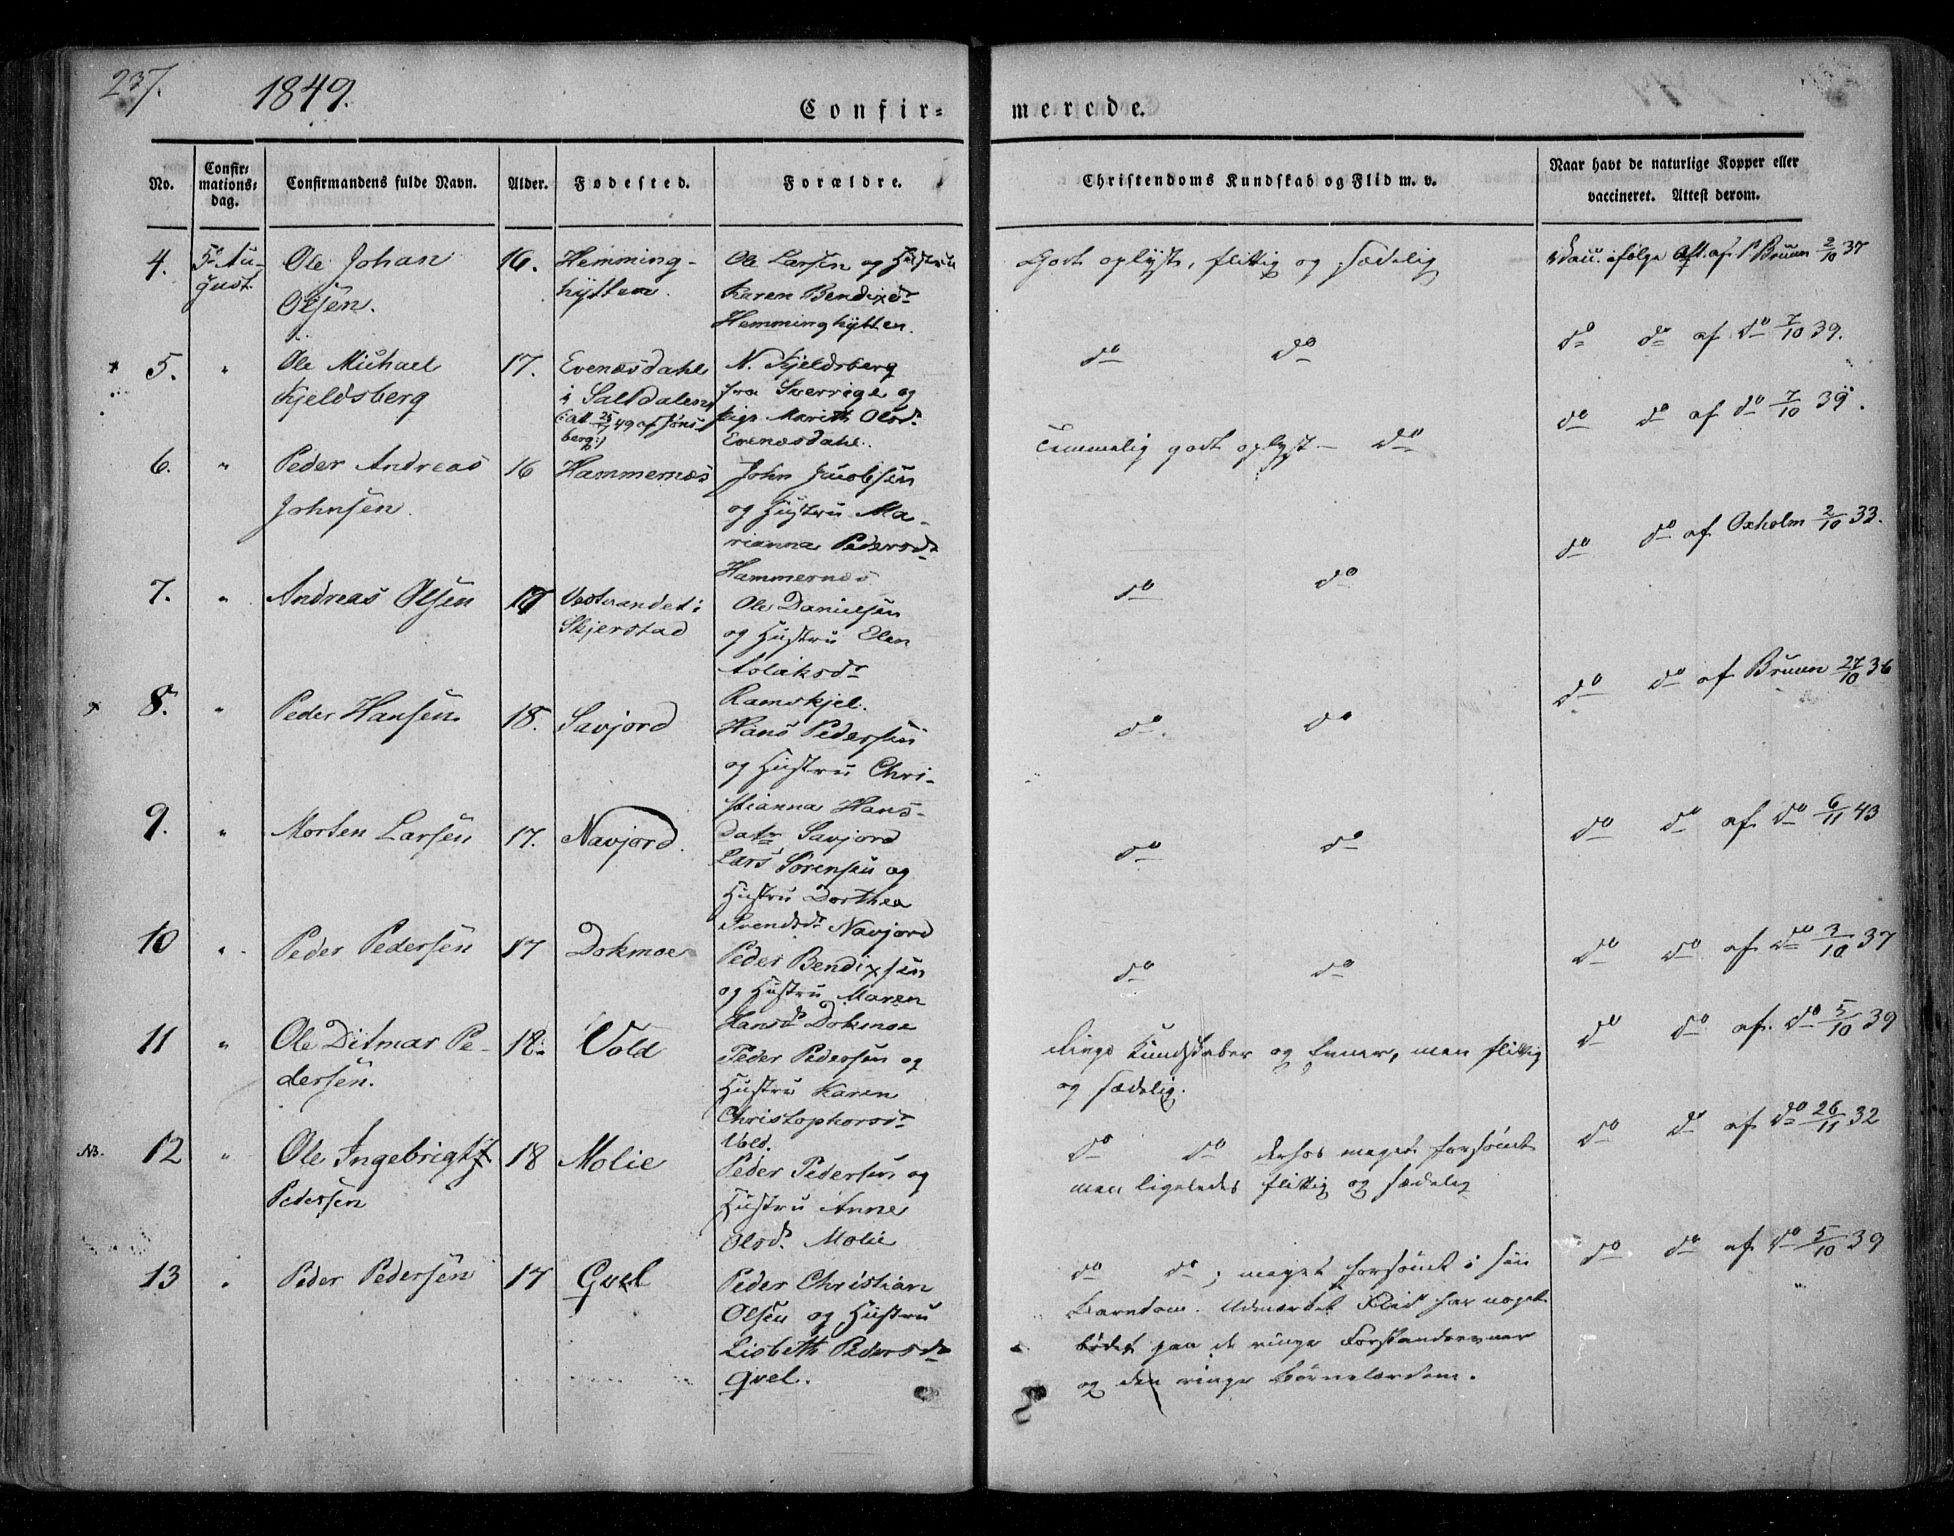 237.
1849.
Confir-
merede.
No.
Confir-
mations-
dag.
Confirmandens fulde Navn.
Alder.
Fødested.
Forældre.
Christendoms Kundskab og Flid m. v.
Naar havt de naturlige Kopper eller
vaccineret. Attest derom.
4. 5te Au-
gust.
Ole Johan
Olsen.
16.
Hemming-
hytten
Ole Larsen og Hustrue
Karen Bendixdr
Hemminghytten.
Godt oplyst, flittig og sædelig
ifølge Att. af Bruun 2/10 37
5. "
Ole Michael
Kjeldsberg
17.
Evenæsdahl
i Saltdalen
(: att 25/7 49 af Jøns-
berg:)
N. Kjeldsberg
fra Sverrige og
Pige Marith Olsdr
Evenæsdahl.
do do
do do af do 7/10 39.
6. "
Peder Andreas
Johnsen.
16
Hammernæs
John Jacobsen
og Hustru Ma-
rianna Pedersdr
Hammernæs
Temmelig godt oplyst – do
do do af do 7/10 39.
7. "
Andreas Olsen
17
i
Skjerstad
Ole Danielsen
og Hustru Elen
Aslaksdr
Ramskjel.
do do
do do af Oxholm 2/10 33.
8. "
Peder Hansen
18.
Savjord
Hans Pedersen
og Hustru Chri-
stianna Hans-
datr Savjord
do do
do do af Bruun 27/10 36
9. "
Morten Larsen
17.
Navjord.
Lars Sørensen og
Hustru Dorthea
Svendsdr Navjord
do do
do do af do 6/11 43
10 "
Peder Pedersen
17
Dokmoe
Peder Bendixsen
og Hustru Maren
Hansdr Dokmoe
do do
do do af do 3/10 37
11 "
Ole Ditmar Pe-
dersen.
18.
Vold
Peder Pedersen og
Hustru Karen
Christophersdr
Vold.
Ringe Kundskaber og Evner, men flittig
og sædelig.
do do af. do 5/10 39
NB. 12 "
Ole Ingebrigt
Pedersen
18
Molie
Peder Pedersen og
Hustru Anne
Olsdr. Molie
do do derhos meget forsømt
men ligeledes flittig og sædelig
do do af do 26/11 32
13 "
Peder Pedersen
17
Qvel
Peder Christian
Olsen og Hustru
Lisbeth Pedersdr
Qvel.
do do, meget forsømt i sin
Barndom. Udmærket Flid har noget
bødet paa de ringe Forstandsevner
og den ringe Børnelærdom.
do do af do 5/10 39